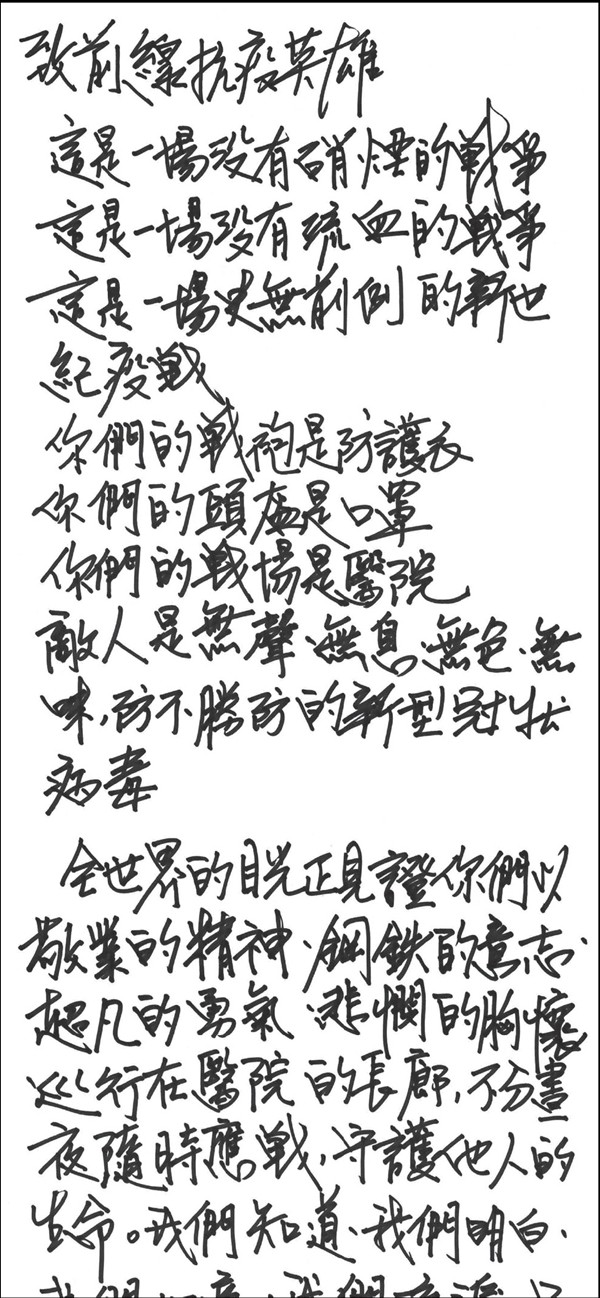 致前線抗疫英雄
這是一場没有硝煙的戰爭
這是一場没有流血的戰爭
這是一場史無前例的新世
紀疫戰
你們的戰袍是防護衣
你們的頭盔是口罩
你們的戰場是醫院
敵人是無聲、無息、無色、無
味,防不勝防的新型冠狀
病毒
全世界的目光正見證你們以
敬業的精神、鋼鉄的意志、
超凡的勇氣、悲憫的胸懷
巡行在醫院的長廊,不分晝
夜隨時應戰,守護他人的
生命。我們知道、我們明白、
我們